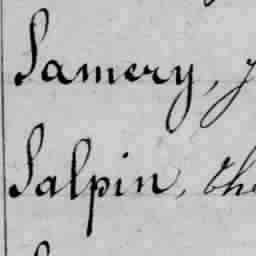 Samery,
Salpin,